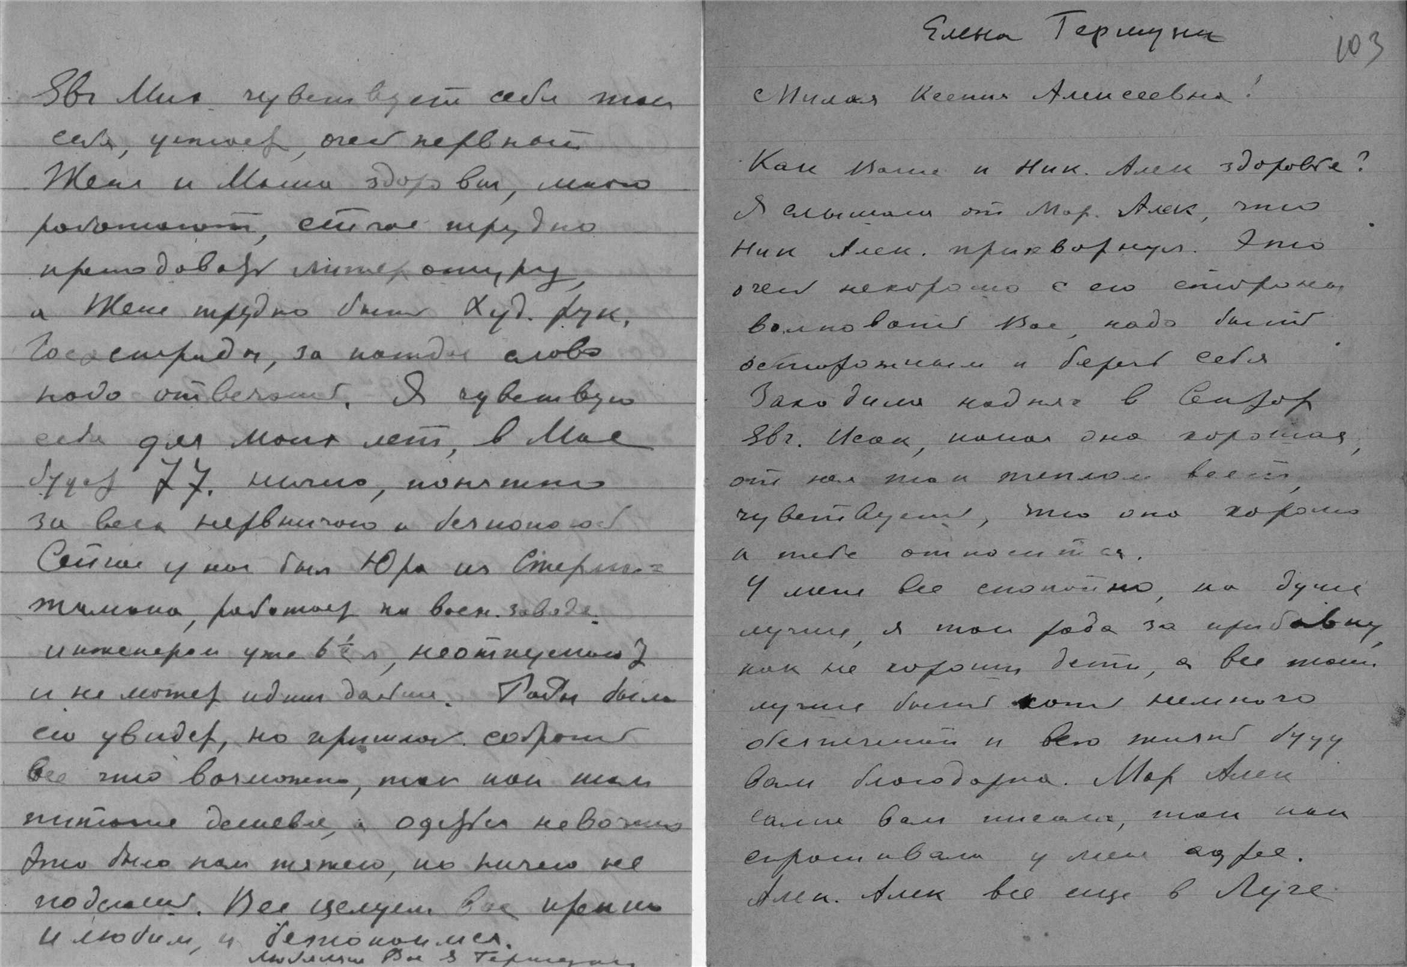 Елена Гермуни
103
Милая Ксения Алексеевна!
Как Ваше и Ник. Алек здоровье?
Я слышала от Мар. Алек, что
Ник Алек. прихворнул. Это
очен нехорошо с его стороны
волноват Вас, надо быть
осторожным и береч себя
Заходила на днях в
Евг. Исак, какая она хорошая,
от нея так теплом веет,
чувствуеш, что она хорошо
к тебе относится.
У меня все спокойно, на душе
лучше, я так рада за прибавку,
как не хороши дети, а все таки
лучше быть хоть немного
обеспеченной и всю жизнь буду
вам благодарна. Мар Алек
сама вам писала, так как
спрашивала у меня адрес.
Алек. Алек все еще в Луге
Евг Мих. чувствует себя так
себе, устает, очен нервный
Женя и Маша здоровы, много
работают, сейчас трудно
преподавать литературу,
а Жене трудно быть Худ. рук.
Госэстрады, за каждое слово
надо отвечать. Я чувствую
себя для моих лет, в Мае
будет 77. ничего, конечно
за всех нервничаю и безпокоюсь
Сейчас у нас был Юра из Стерли-
тамака, работает на воен. заводе.
инженером уже 6 1/2 л, не отпускают
и не может идти дальше. Рады были
его увидеть, но пришлос собрать
все что возможно, так как там
питание дешевле, а одеться невозможно
Это было нам тяжело, но ничего не
поделаеш. Все целуем вас крепко
и любим, и безпокоимся.
Любящая Вас Е Гермуни